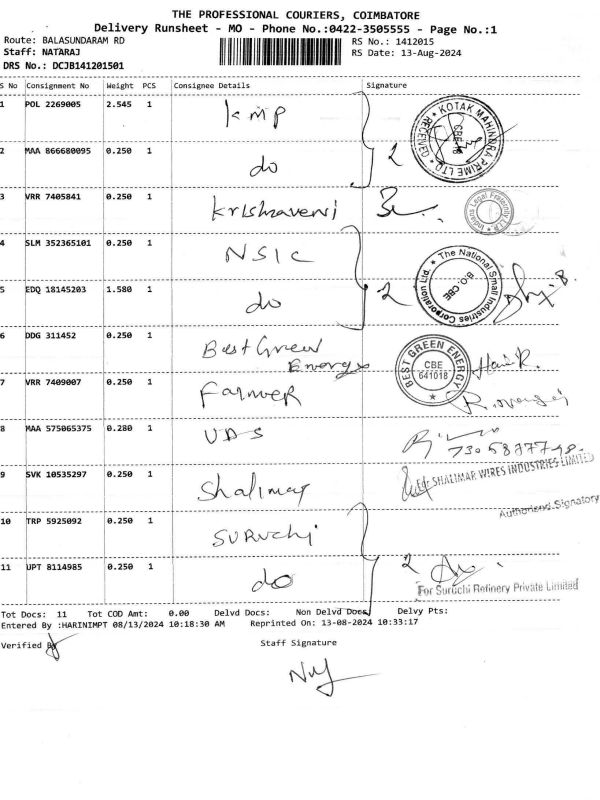 THE PROFESSIONAL COURIERS, COIMBATORE
Delivery Runsheet - MO - Phone No.:0422-3505555 - Page No.:1
Route: BALASUNDARAM RD RS No.: 1412015
Staff: NATARAJ RS Date: 13-Aug-2024
DRS No.: DCJB141201501
S No Consignment No Weight PCS Consignee Details Signature
1 POL 2269005 2.545 1 KMP
KOTAK MAHINDRA PRIME LTD RECEIVED CBE
2 MAA 866680095 0.250 1 do 2
3 VRR 7405841 0.250 1 Krishnaveni
4 SLM 352365101 0.250 1 NSIC
The National Small Industries Corporation Ltd. B.O. CBE
5 EDQ 18145203 1.580 1 do 2
6 DDG 311452 0.250 1 Best Green Energy
BEST GREEN ENERGY CBE 641018
7 VRR 7409007 0.250 1 Farmer
8 MAA 575065375 0.280 1 UDS
9 SVK 10535297 0.250 1 Shalimar For SHALIMAR WIRES INDUSTRIES LIMITED
Authorised Signatory
10 TRP 5925092 0.250 1 Suruchi
11 UPT 8114985 0.250 1 do 2
For Suruchi Refinery Private Limited
Tot Docs: 11 Tot COD Amt: 0.00 Delvd Docs: Non Delvd Docs: Delvy Pts:
Entered By :HARINIMPT 08/13/2024 10:18:30 AM Reprinted On: 13-08-2024 10:33:17
Verified By Staff Signature